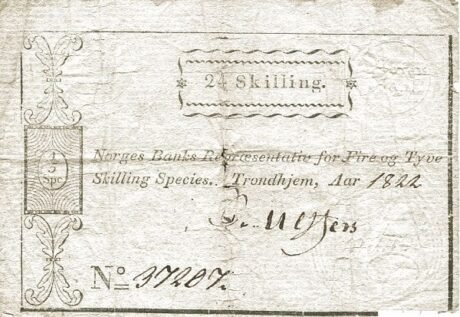 24 Skilling.
1
5
Spc
Norges Banks Repræsentativ for Fire og Tyve
Skilling Species. Trondhjem, Aar 1822
No 37207.